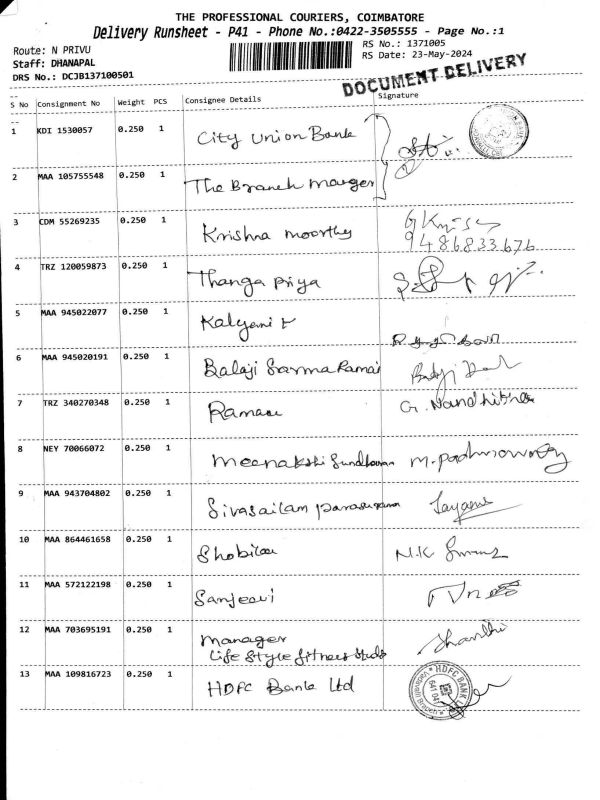 THE PROFESSIONAL COURIERS, COIMBATORE
Delivery Runsheet - P41 - Phone No.:0422-3505555 - Page No.:1
Route: N PRIVU
RS No.: 1371005
Staff: DHANAPAL
RS Date: 23-May-2024
DRS No.: DCJB137100501
DOCUMENT DELIVERY
S No Consignment No Weight PCS Consignee Details Signature
1 KDI 1530057 0.250 1 City Union Bank
2 MAA 105755548 0.250 1 The Branch Manger
3 CDM 55269235 0.250 1 Krishna moorthy
9486833676
4 TRZ 120059873 0.250 1 Thanga Priya
5 MAA 945022077 0.250 1 Kalyani
6 MAA 945020191 0.250 1 Balaji Sarma Ramai
7 TRZ 340270348 0.250 1 Raman G. Nandhitha
8 NEY 70066072 0.250 1 Meenakshi Sundharam
9 MAA 943704802 0.250 1 Sivasailam Parasuraman
10 MAA 864461658 0.250 1 Shobila N.K
11 MAA 572122198 0.250 1 Sanjeevi
12 MAA 703695191 0.250 1 Manager
Life Style fitness Studo Shanthi
13 MAA 109816723 0.250 1 HDFC Bank Ltd
HDFC BANK